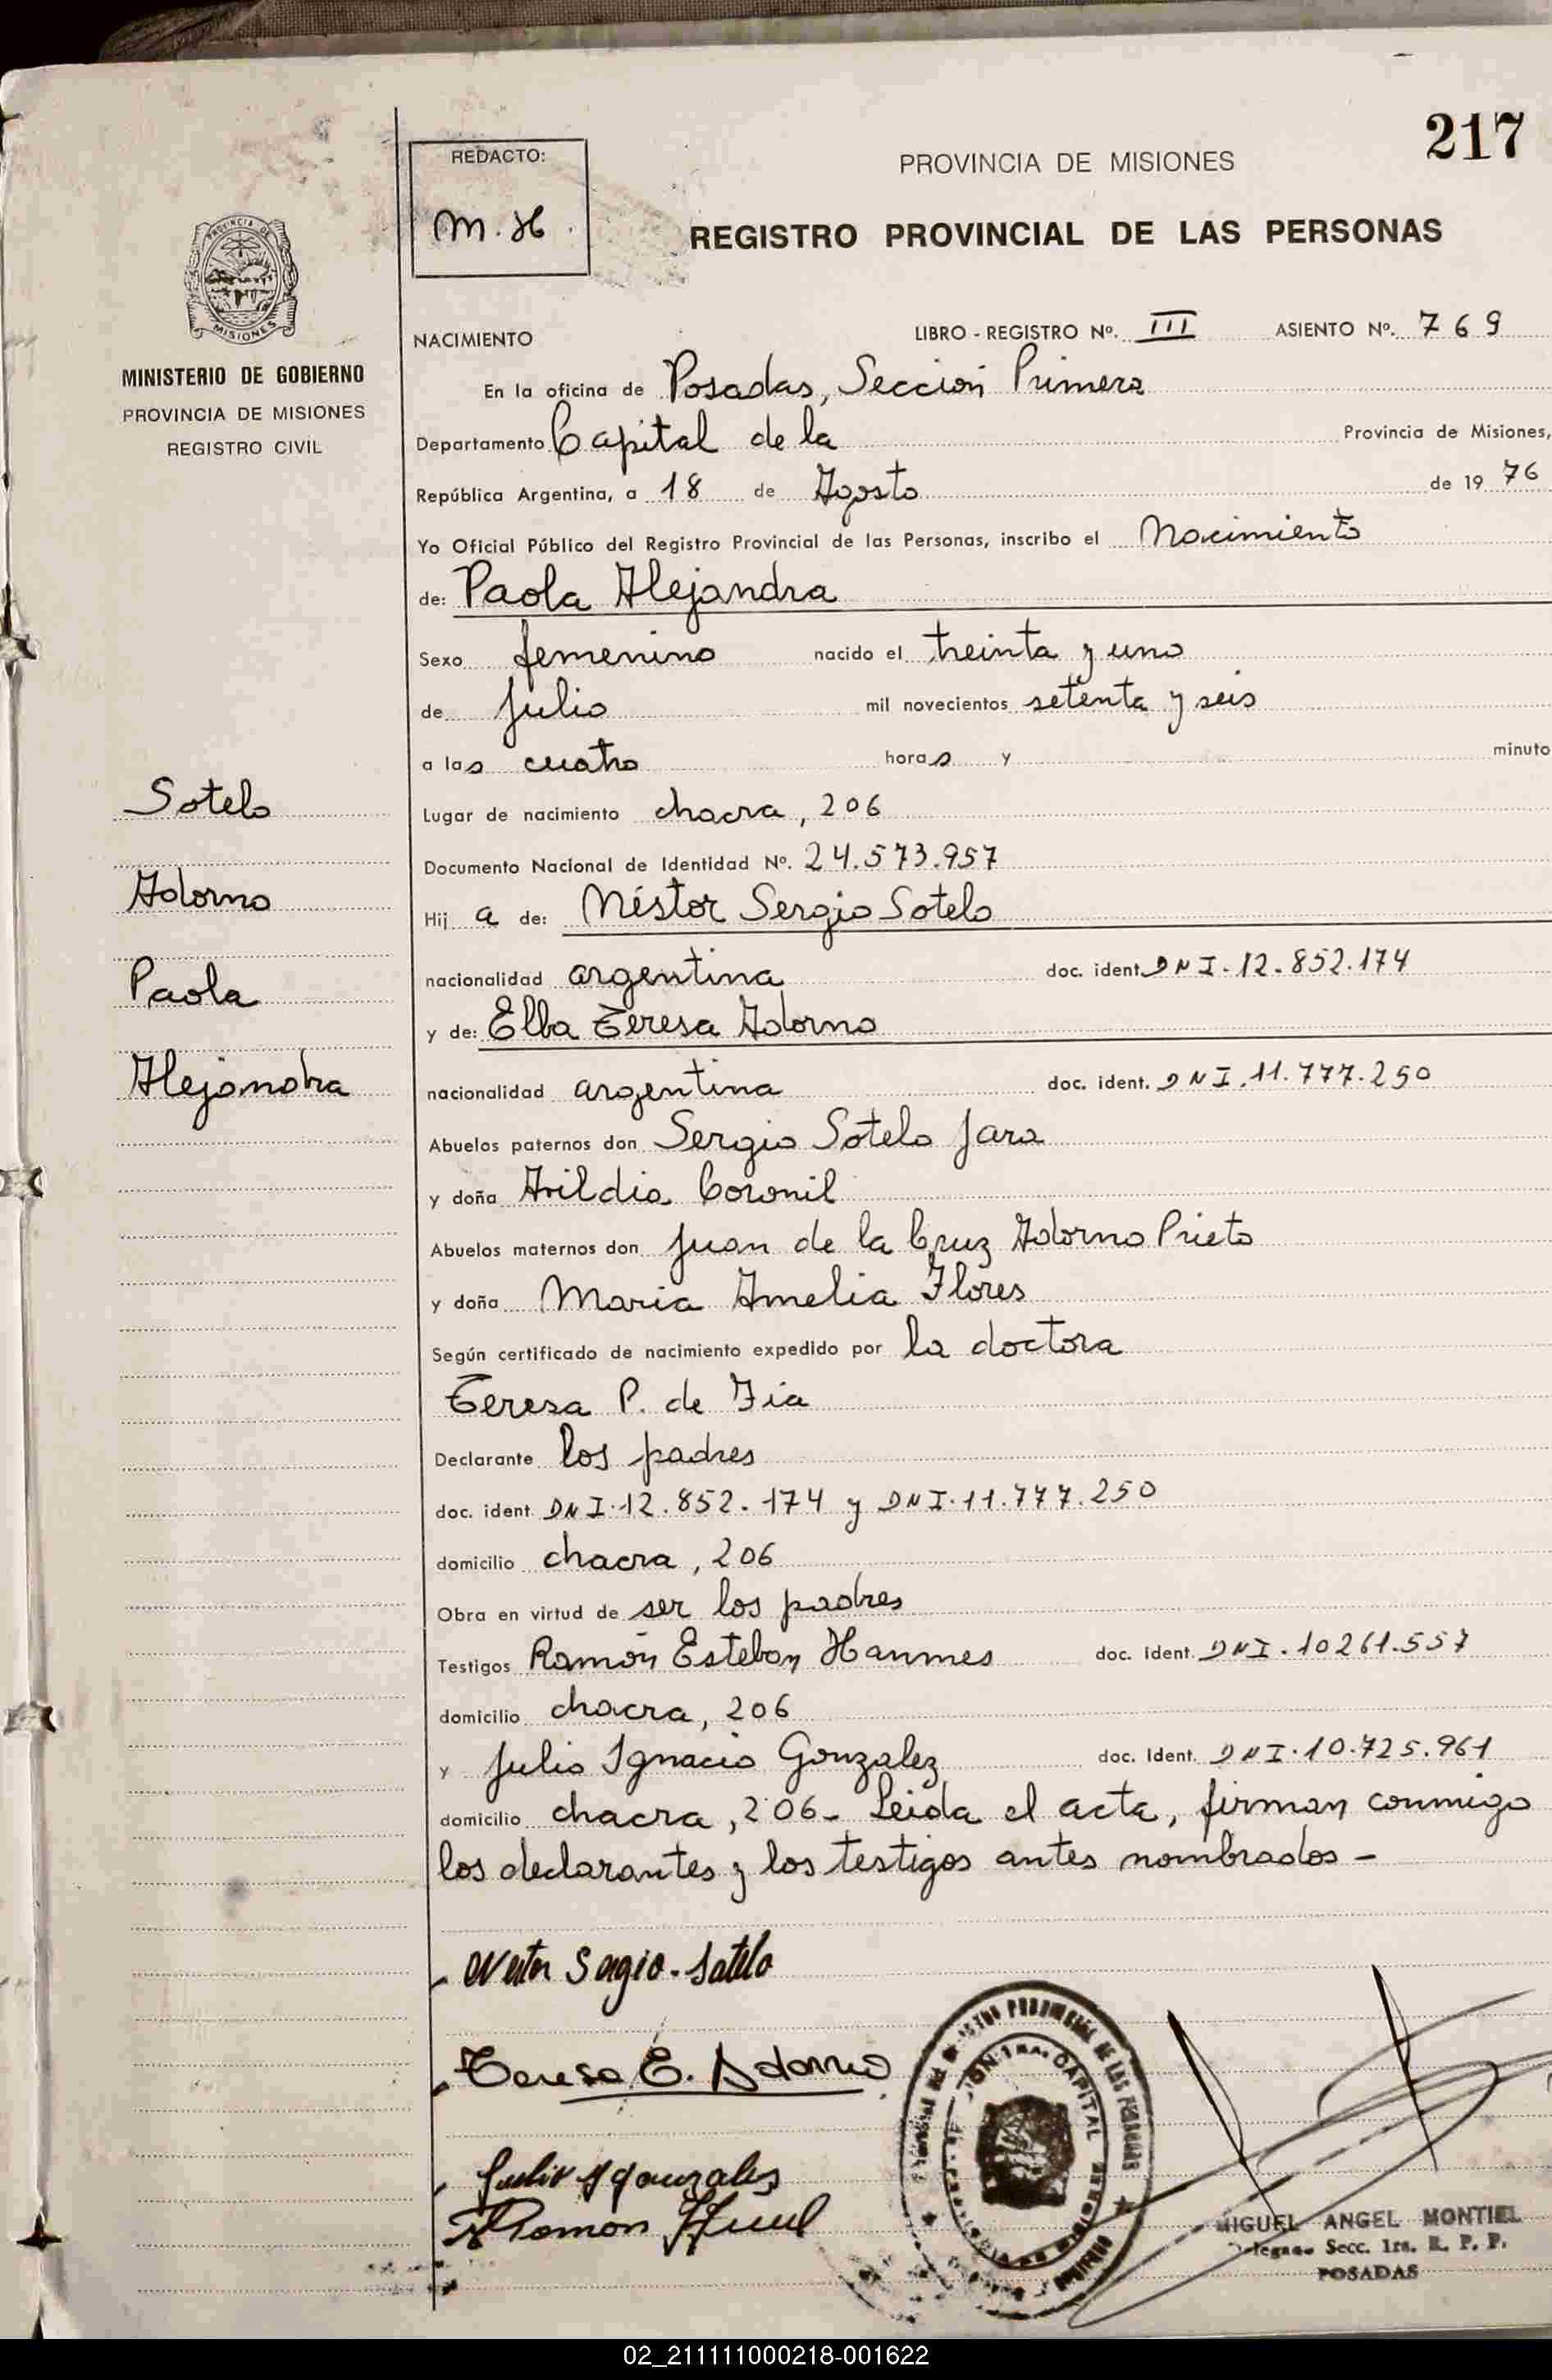 217
REDACTO:
M. H.
PROVINCIA DE MISIONES
REGISTRO PROVINCIAL DE LAS PERSONAS
PROVINCIA DE
MISIONES
MINISTERIO DE GOBIERNO
PROVINCIA DE MISIONES
REGISTRO CIVIL
NACIMIENTO LIBRO - REGISTRO Nº. III ASIENTO Nº. 769
En la oficina de Posadas, Sección Primera
Departamento Capital de la Provincia de Misiones,
República Argentina, a 18 de Agosto de 1976
Yo Oficial Público del Registro Provincial de las Personas, inscribo el Nacimiento
de: Paola Alejandra
Sexo femenino nacido el treinta y uno
de julio mil novecientos setenta y seis
a las cuatro horas y minuto
Sotelo
Adorno
Paola
Alejandra
Lugar de nacimiento chacra, 206
Documento Nacional de Identidad Nº. 24.573.957
Hij a de: Néstor Sergio Sotelo
nacionalidad argentina doc. ident. DNI-12.852.174
y de: Elba Teresa Adorno
nacionalidad argentina doc. ident. DNI.11.777.250
Abuelos paternos don Sergio Sotelo Jara
y doña Arildia Coronil
Abuelos maternos don Juan de la Cruz Adorno Prieto
y doña Maria Amelia Flores
Según certificado de nacimiento expedido por la doctora
Teresa P. de Fia
Declarante los padres
doc. ident. DNI.12.852.174 y DNI.11.777.250
domicilio chacra, 206
Obra en virtud de ser los padres
Testigos Ramón Esteban Hanmes doc. Ident. DNI.10261.557
domicilio chacra, 206
y Julio Ignacio Gonzalez doc. Ident. DNI.10.725.961
domicilio chacra, 206- Leida el acta, firman conmigo
los declarantes y los testigos antes nombrados -
Nestor Sergio Sotelo
Teresa E. Adorno
Julio I Gonzales
Ramon
PROVINCIAL DE LAS PERSONAS
1ra. CAPITAL
MIGUEL ANGEL MONTIEL
Secc. 1ra. R. P. P.
POSADAS
02_211111000218-001622